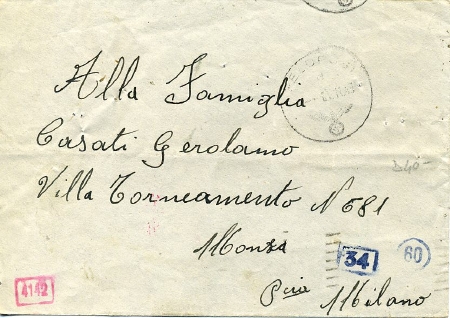 Alla Famiglia
Casati Gerolamo
Villa Torneamento N 681
Monza
Pcia Milano
340-
34
60
4142